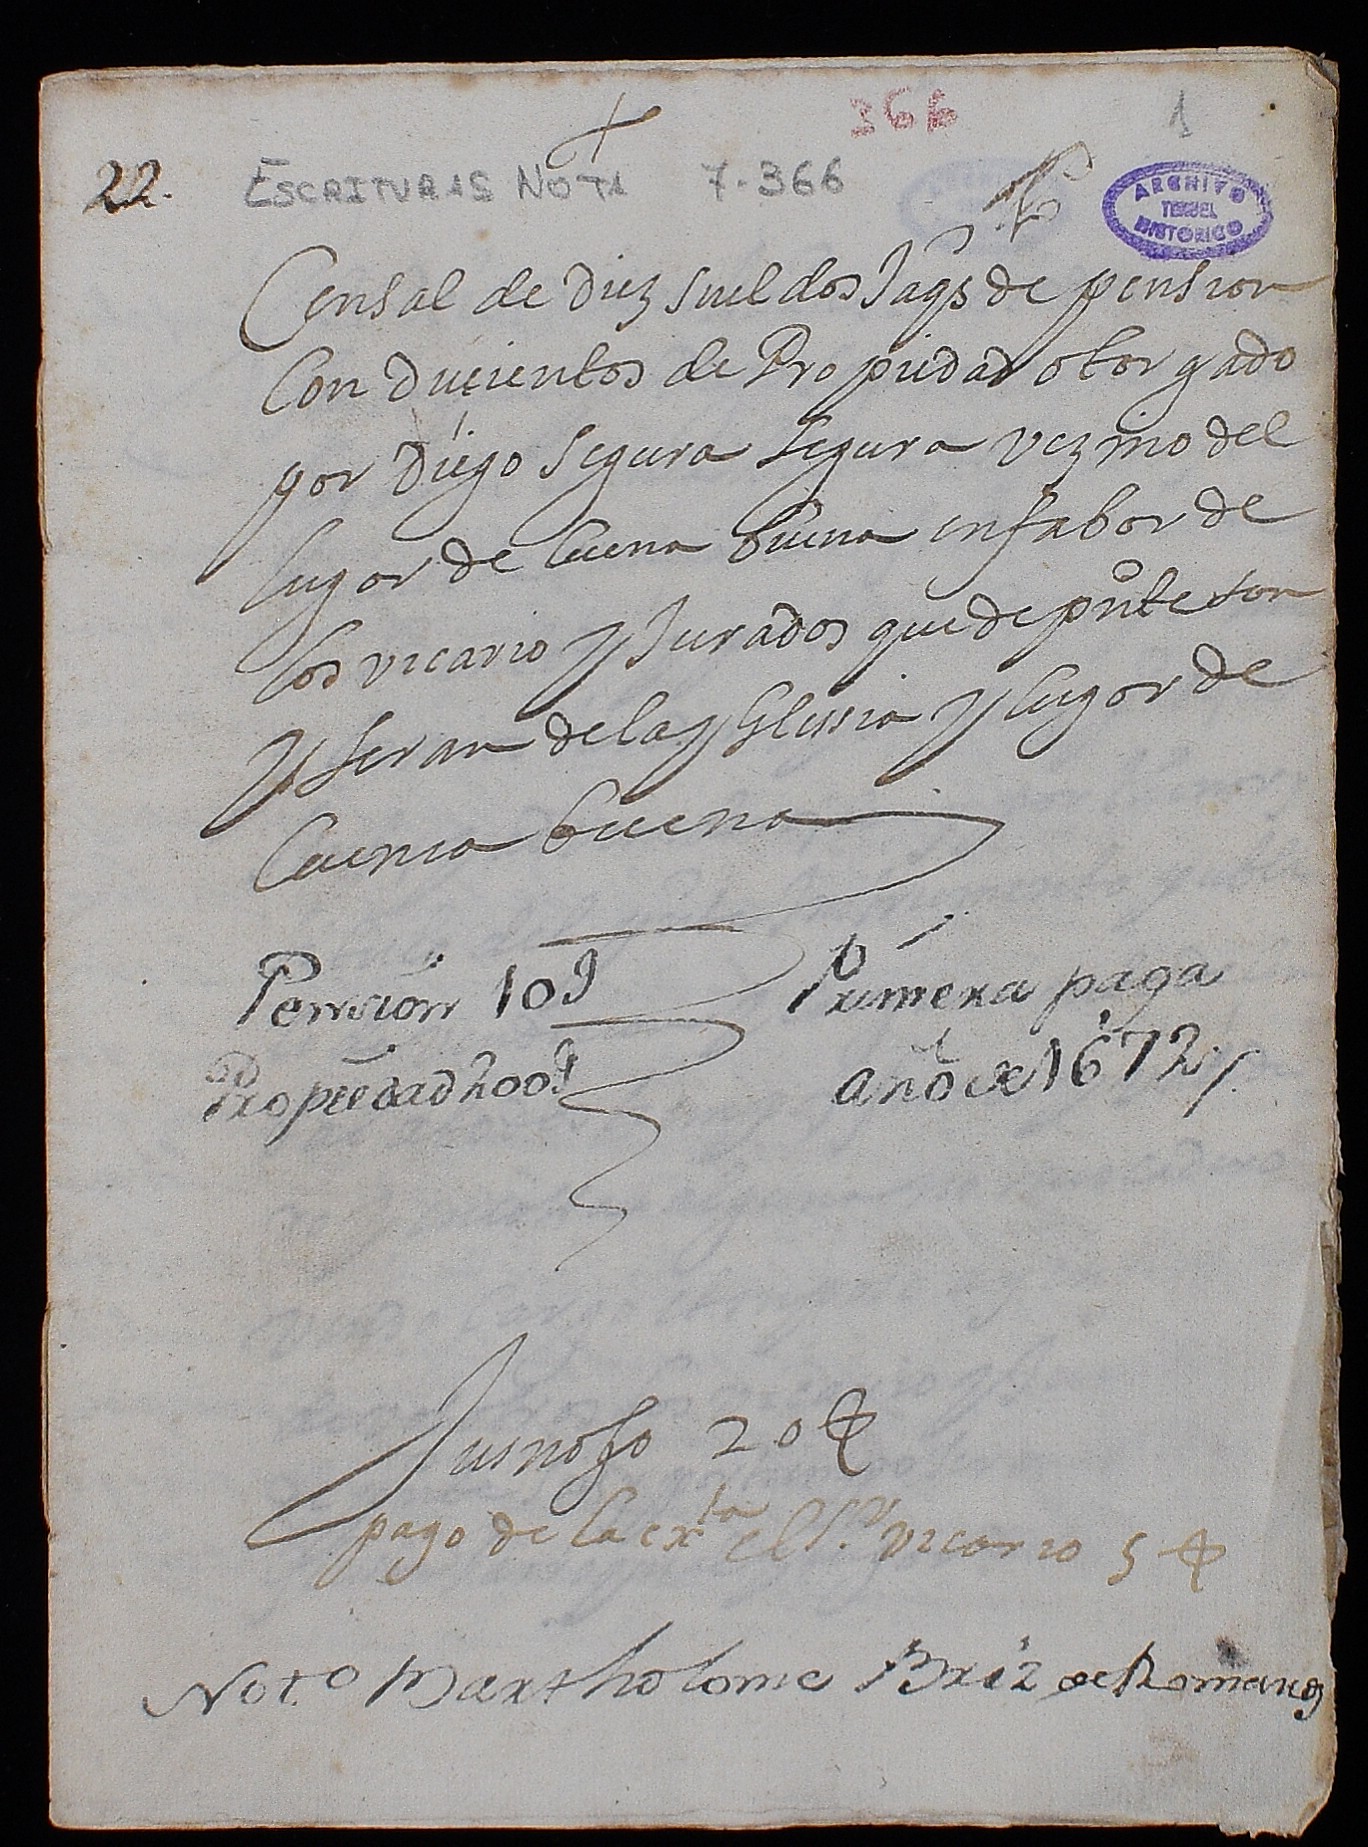 366 1
22. ESCRITURAS NOTA 7-366
ARCHIVO
TERUEL
HISTORICO
Censal de Diez sueldos Jaqs de pension
Con Duçientos de Propiedad otorgado
por Diego Segura Segura vezino del
lugar de Cuena buena en fabor de
los vicario y Jurados que de pnte son
y seran de la yglessia y lugar de
Cuenca buena
Penssion 10 s Primera paga
Propiedad 200 s año de 1672
pago de la exta el Sr vicario 5
Noto Barthome Briz de Romanos